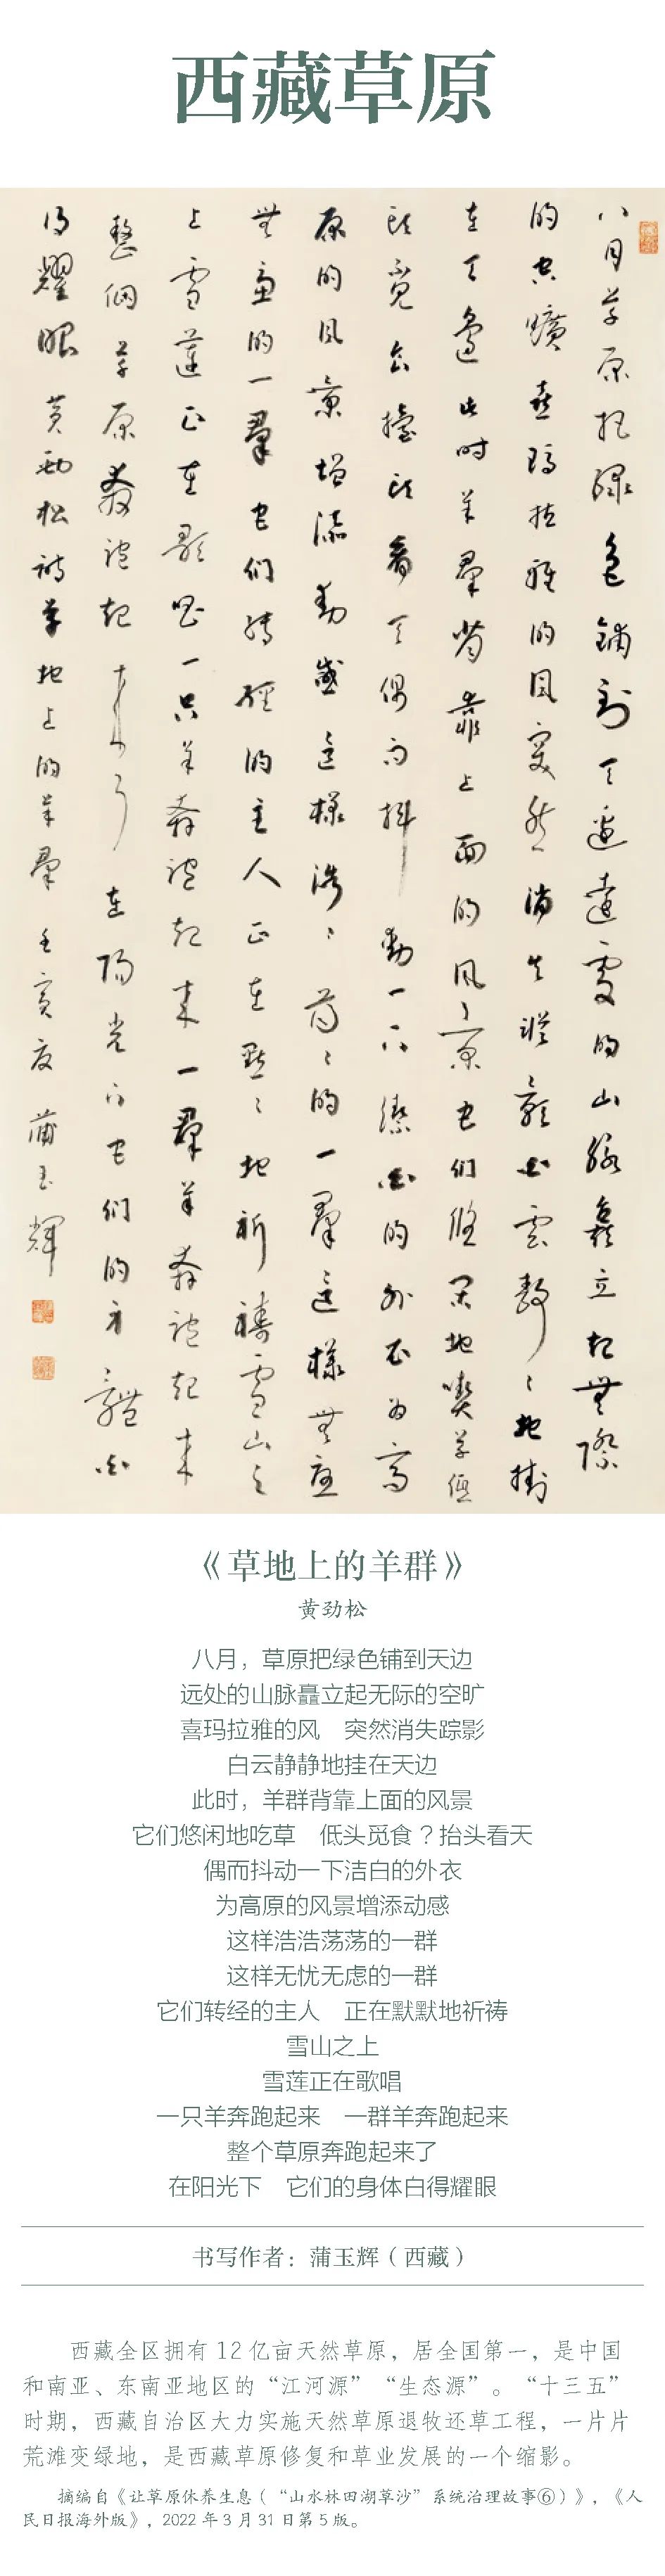 西藏草原
八月草原把綠色鋪到天邊遠處的山脉矗立起無際
的空曠喜瑪拉雅的風突然消失踪影白雲靜〻地掛
在天邊此時羊羣背靠上面的風景它們悠閑地喫草低
頭覓食抬頭看天偶而抖動一下潔白的外衣为高
原的風景增添動感這樣浩〻蕩〻的一羣這樣無憂
無慮的一羣它們轉經的主人正在默〻地祈禱雪山之
上雪蓮正在歌唱一只羊奔跑起来一羣羊奔跑起来
整個草原奔跑起来了在陽光下它們的身體白
得耀眼黄勁松詩草地上的羊羣壬寅夏蒲玉輝
《草地上的羊群》
黄劲松
八月，草原把绿色铺到天边
远处的山脉矗立起无际的空旷
喜玛拉雅的风　突然消失踪影
白云静静地挂在天边
此时，羊群背靠上面的风景
它们悠闲地吃草　低头觅食？抬头看天
偶而抖动一下洁白的外衣
为高原的风景增添动感
这样浩浩荡荡的一群
这样无忧无虑的一群
它们转经的主人　正在默默地祈祷
雪山之上
雪莲正在歌唱
一只羊奔跑起来　一群羊奔跑起来
整个草原奔跑起来了
在阳光下　它们的身体白得耀眼
书写作者：蒲玉辉（西藏）
西藏全区拥有12亿亩天然草原，居全国第一，是中国
和南亚、东南亚地区的“江河源”“生态源”。“十三五”
时期，西藏自治区大力实施天然草原退牧还草工程，一片片
荒滩变绿地，是西藏草原修复和草业发展的一个缩影。
摘编自《让草原休养生息（“山水林田湖草沙”系统治理故事⑥）》，《人
民日报海外版》，2022年3月31日第5版。